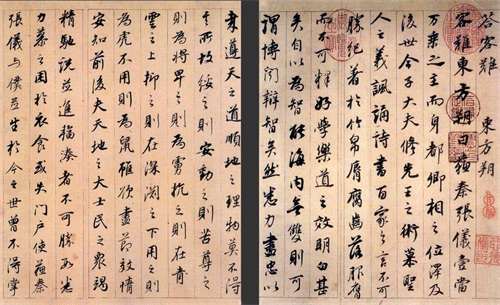 答客難 東方朔
客難東方朔曰蘇秦張儀壹當
萬乘之主而身都卿相之位澤及
後世今子大夫修先王之術慕聖
人之義諷誦詩書百家之言不可
勝紀著於竹帛脣腐齒落服膺
而不可釋好學樂道之效明白甚
矣自以為智能海內無雙則可
謂博聞辯智矣然悉力盡忠以
聿遵天之道順地之理物莫不得
其所故綏之則安動之則苦尊之
則為將卑之則為虜抗之則在青
雲之上抑之則在深淵之下用之則
為虎不用則為鼠雖欲盡節效情
安知前後夫天地之大士民之衆竭
精馳說並進輻湊者不可勝數悉
力慕之困於衣食或失門戶使蘇秦
張儀與僕並生於今之世曾不得掌